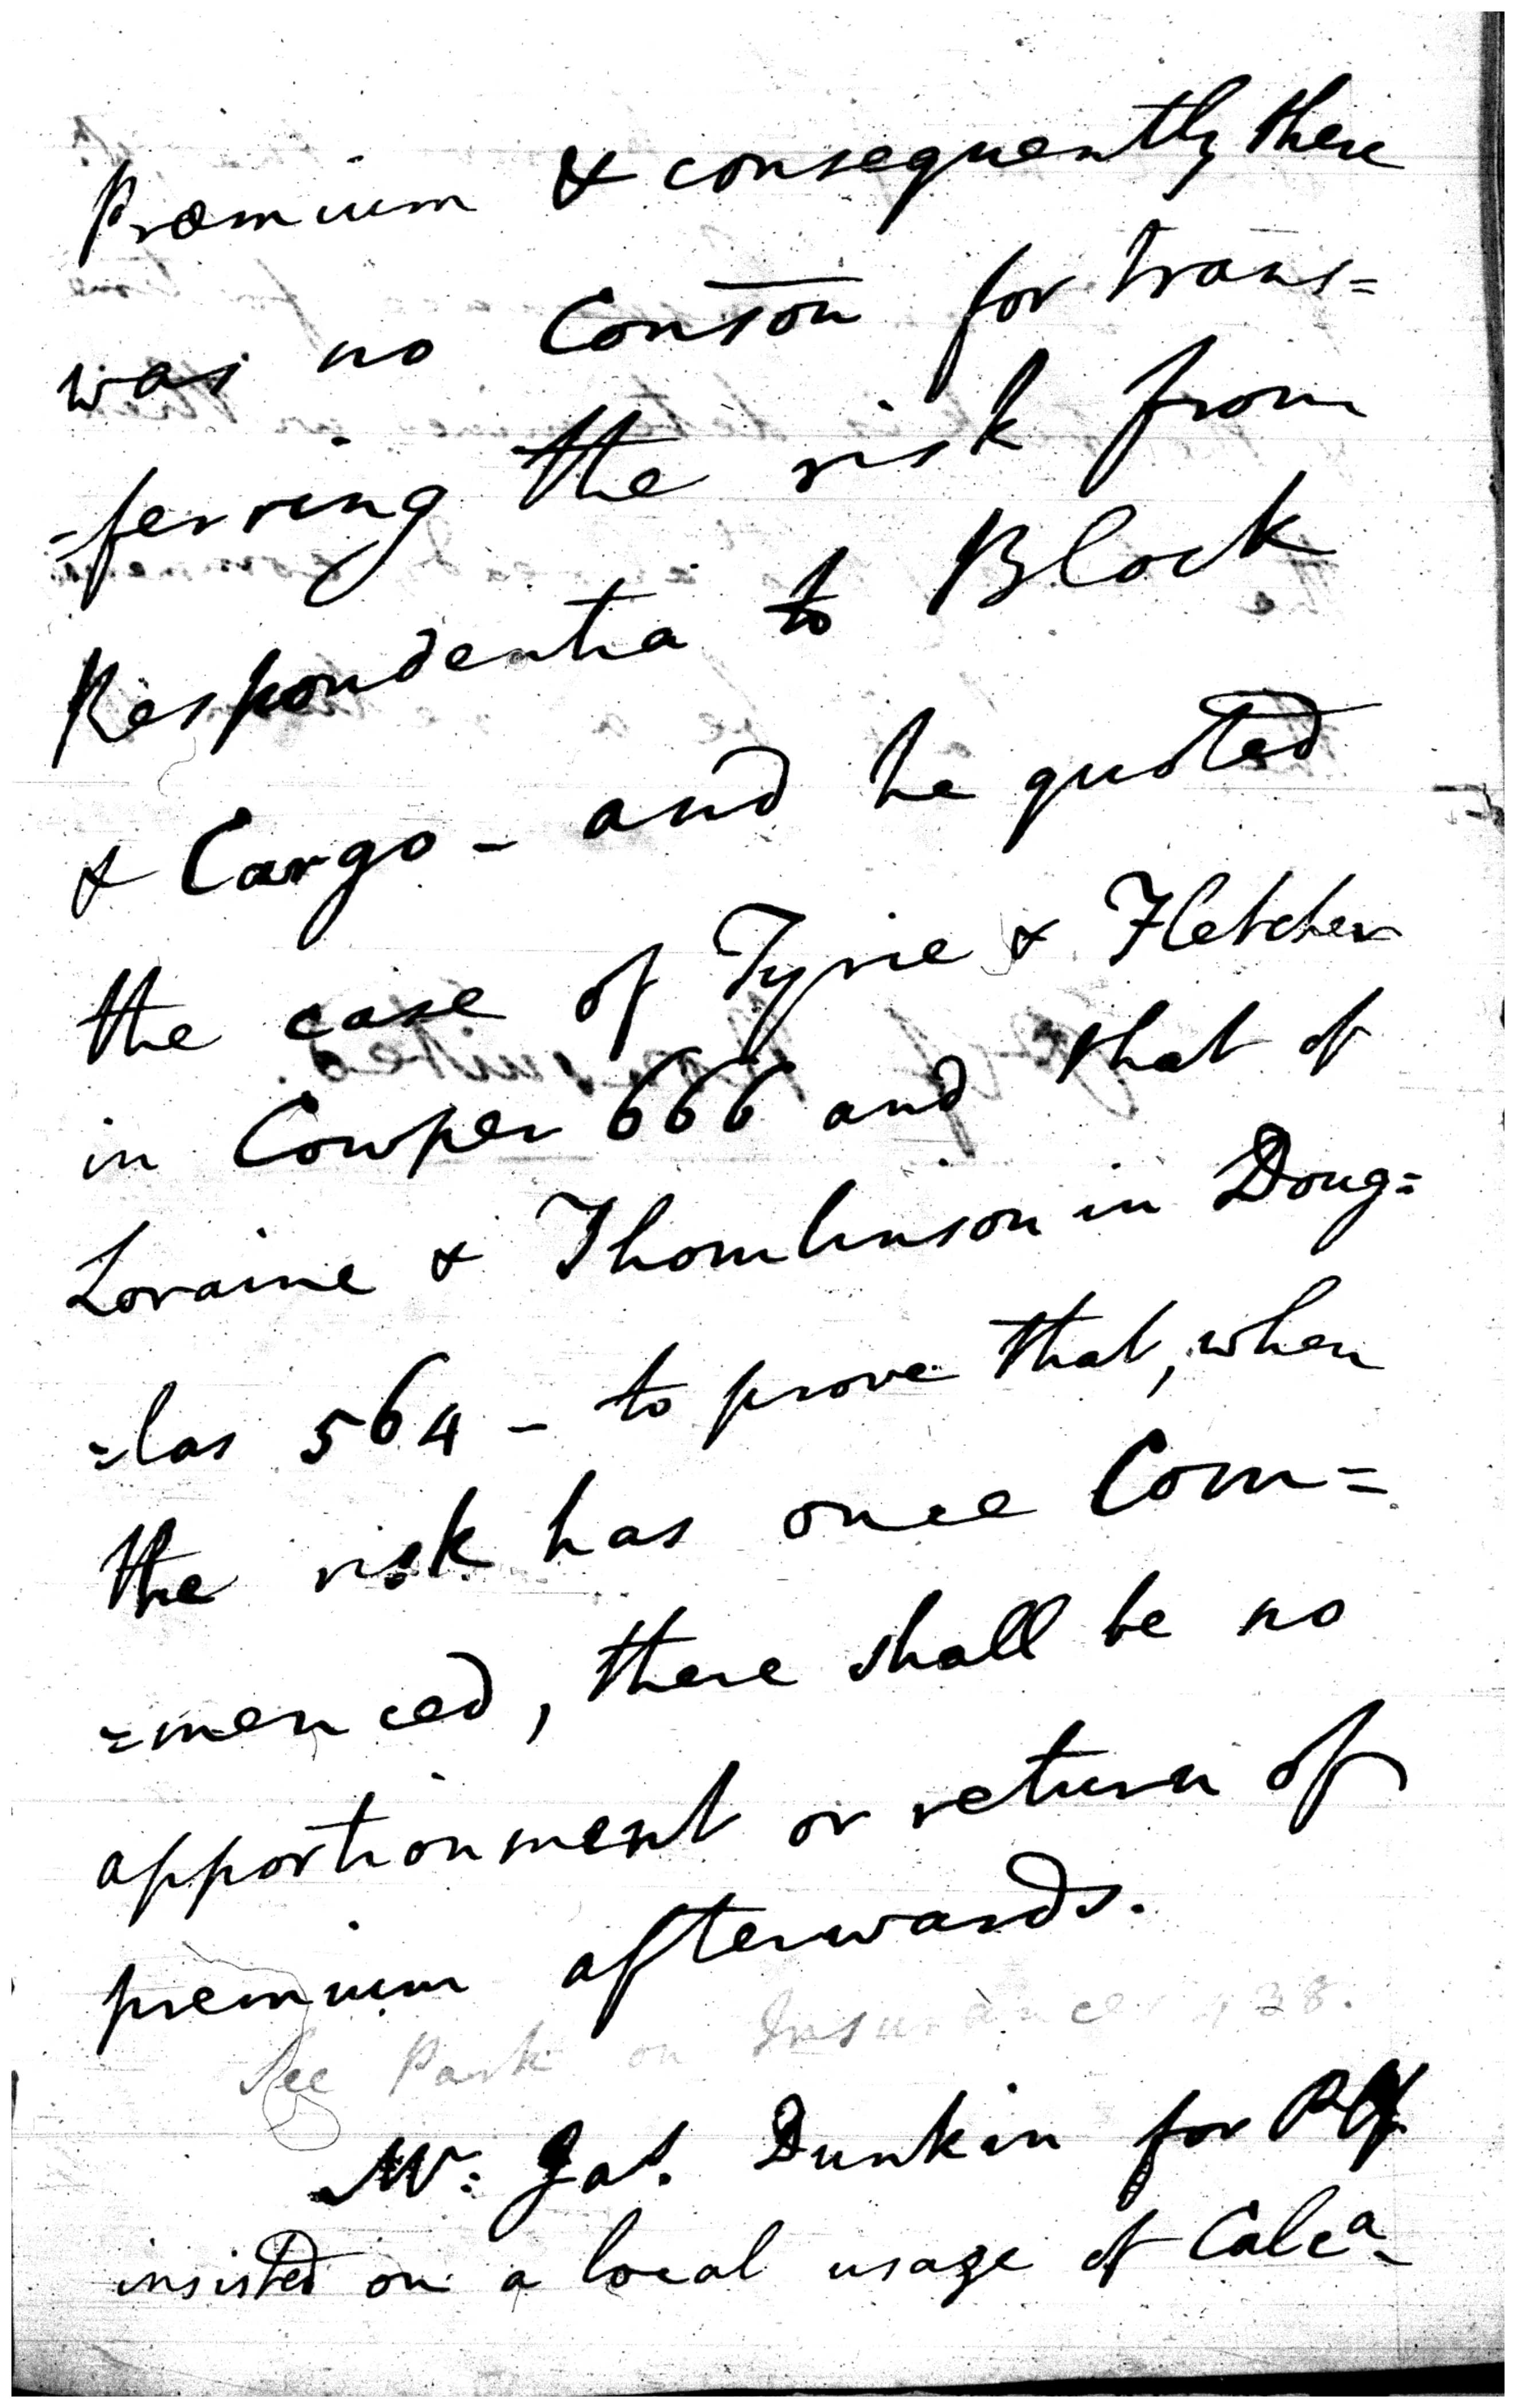 Præmium & consequently there
was no Conson for trans=
=ferring the risk from
Respondentia to Block
& Cargo - and he quoted
the case of Tyrie & Fletcher
in Cowper 666 and that of
Loraine & Thomlinson in Doug=
=las 564 - to prove that, when
the risk has once Com=
=menced, there shall be no
apportionment or return of
premium afterwards.
See Park on Insurances 438.
Mr: Jas. Dunkin for Plff
insisted on a local usage of Calca